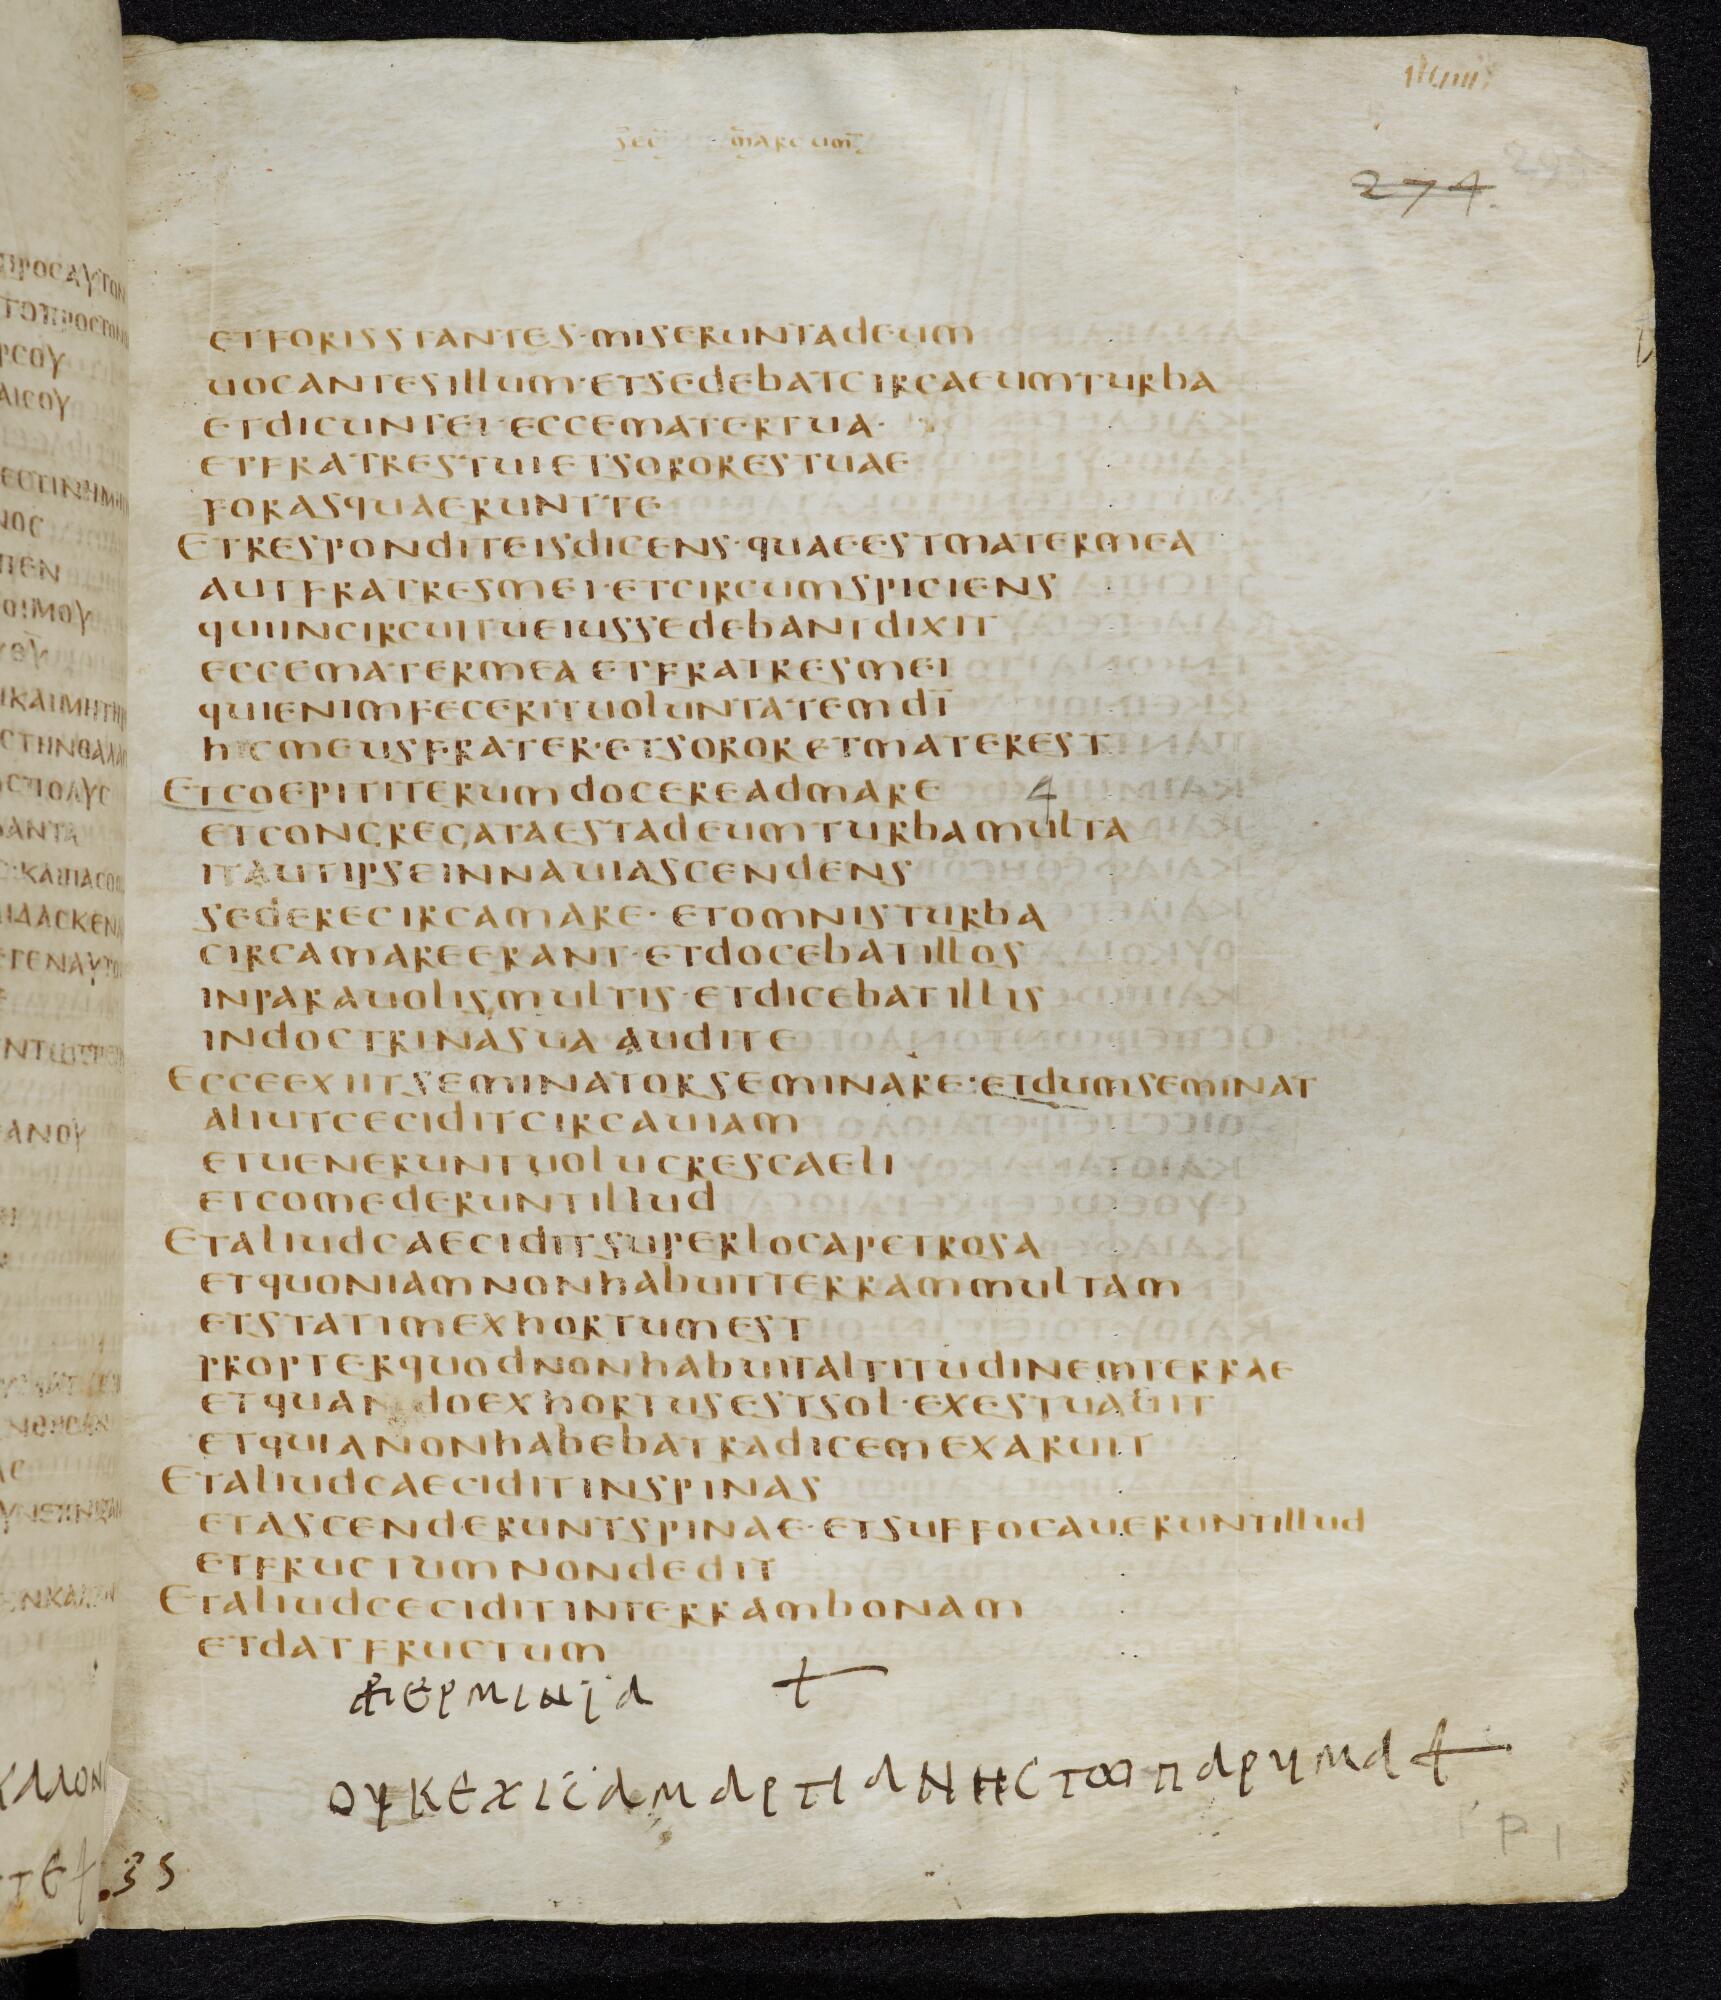 sec marcum
274.
ETFORISSTANTES·MISERUNTADEUM
UOCANTESILLUM·ETSEDEBATCIRCAEUMTURBA
ETDICUNTEI·ECCEMATERTUA·
ETFRATRESTUIETSORORESTUAE
FORASQUAERUNTTE
ETRESPONDITEISDICENS·QUAEESTMATERMEA
AUTFRATRESMEI·ETCIRCUMSPICIENS
QUIINCIRCUITUEIUSSEDEBANTDIXIT
ECCEMATERMEA ETFRATRESMEI
QUIENIMFECERITUOLUNTATEMDĪ
HICMEUSFRATER·ETSORORETMATEREST
ETCOEPITITERUMDOCEREADMARE 4
ETCONGREGATAESTADEUMTURBAMULTA
ITAUTIPSEINNAUIASCENDENS
SEDERECIRCAMARE· ETOMNISTURBA
CIRCAMAREERANT·ETDOCEBATILLOS
INPARAUOLISMULTIS·ETDICEBATILLIS
INDOCTRINASUA AUDITE
ECCEEXIITSEMINATORSEMINARE·ETDUMSEMINAT
ALIUTCECIDITCIRCAUIAM
ETUENERUNTUOLUCRESCAELI
ETCOMEDERUNTILLUD
ETALIUDCAECIDITSUPERLOCAPETROSA
ETQUONIAMNONHABUITTERRAMMULTAM
ETSTATIMEXHORTUMEST
PROPTERQUODNONHABUITALTITUDINEMTERRAE
ETQUANDOEXHORTUSESTSOL·EXESTUAUIT
ETQUIANONHABEBATRADICEMEXARUIT
ETALIUDCAECIDITINSPINAS
ETASCENDERUNTSPINAE·ETSUFFOCAUERUNTILLUD
ETFRUCTUMNONDEDIT
ETALIUDCECIDITINTERRAMBONAM
ETDATFRUCTUM
ΕΡΜΙΝΙΑ +
ΟΥΚΕΧΙCΑΜΑΡΤΙΑΝΗCΤΟΠΑΡΥΜΑ +
35